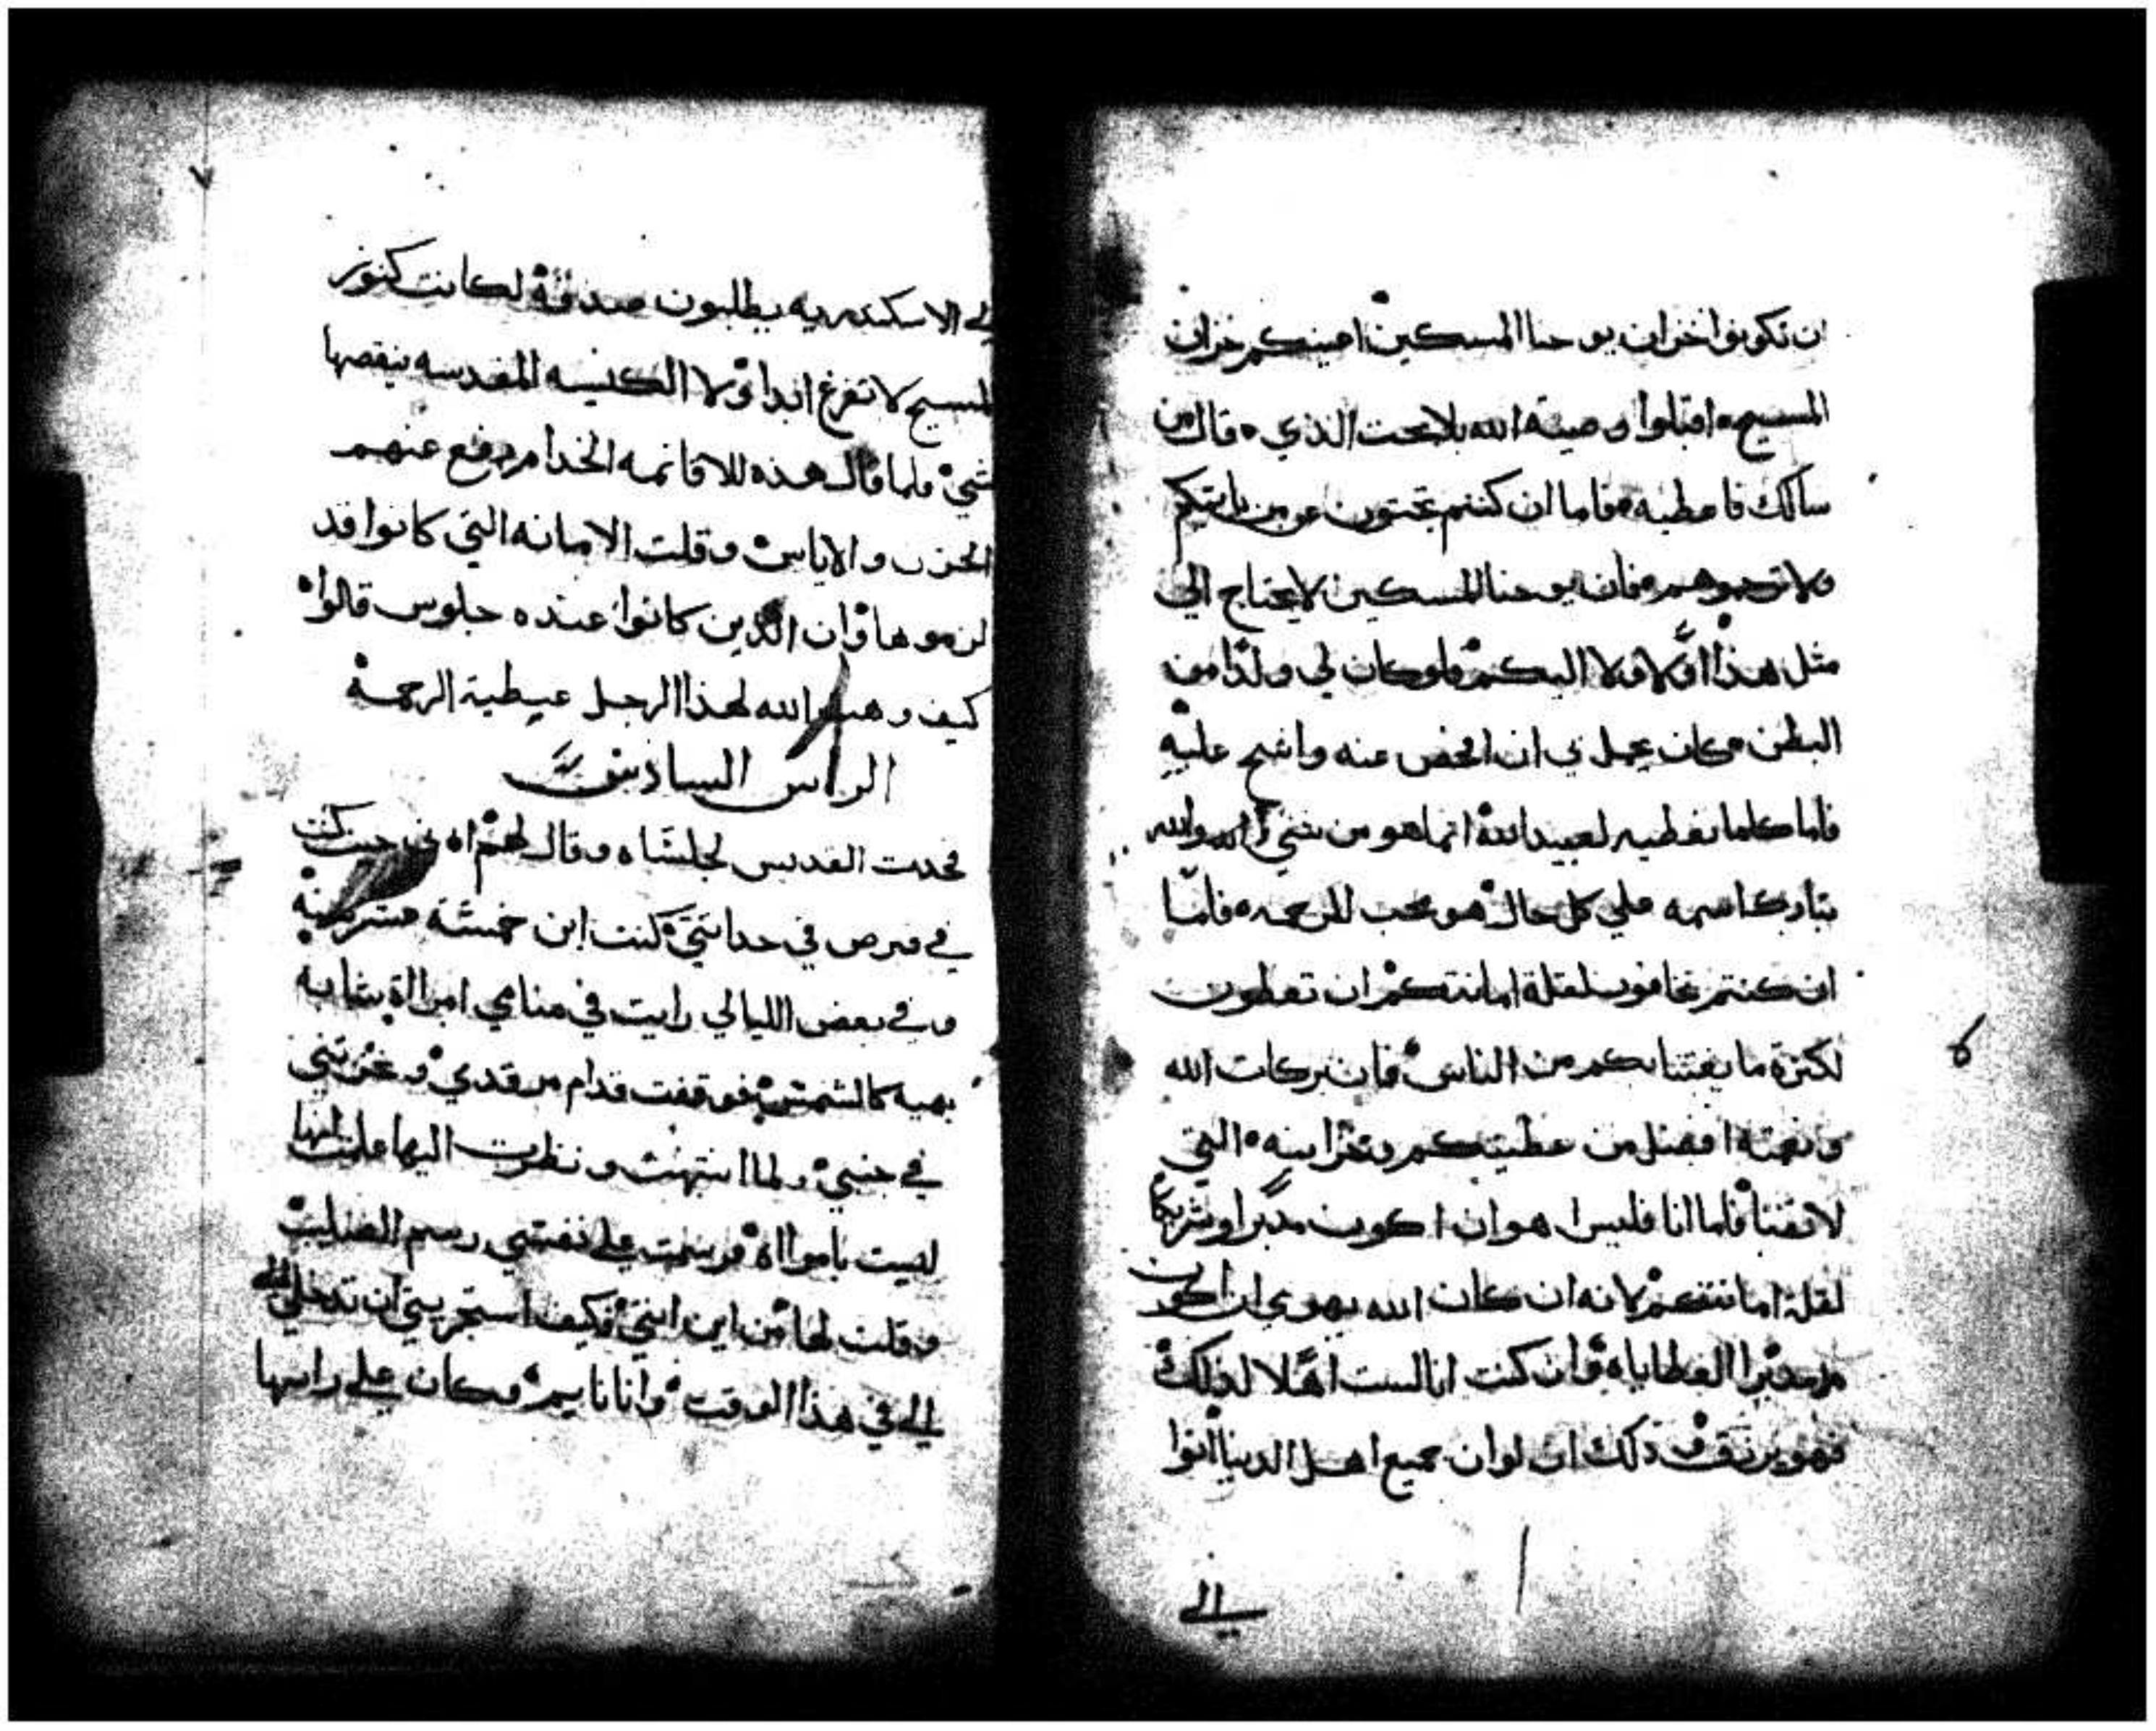 ان تكونوا خزان يوحنا المسكين اعينكم خزان
المسيح اقبلوا وصية الله بلا بحث الذي قال من
سالك فاعطيه فاما ان كنتم
ولا فانه يوحنا المسكين لا يحتاج الي
مثل هذا اولا ولا اليكم فلو كان لي ولدا من
البطن كان يجمل بي ان افحص عنه واشح عليه
فاما كلما نعطيه لعبيد الله انما هو من والله
تبارك اسمه علي كل حال هو محب للرحمه فاما
ان كنتم تخافون لقلة امانتكم ان تعطون
لكثرة ما من الناس فان بركات الله
ونعمته افضل من عطيتكم وخزاينه التي
لا تفنا فاما انا فليس اهوا ان اكون مدبرا وشريكا
لقلة امانتكم لانه ان كان الله يهوي ان اكون
مدبرا لعطاياه وان كنت انا لست اهلا لذلك
فهو ذلك ان لو ان جميع اهل الدنيا اتوا
الي
٦
٧
الي الاسكندريه يطلبون صدقة لكانت كنوز
المسيح لا تفرغ ابدا ولا الكنيسه المقدسه ينقصها
شي فلما قال هذه للاقانمه الخدام دفع عنهم
الحزن والاياس وقلت الامانه التي كانوا قد
لزموها وان الذين كانوا عنده جلوس قالوا
كيف وهب الله لهذا الرجل عيطية الرحمة
الراس السادس
فحدث القديس لجلساه وقال لهم اه ني حيث كنت
في قبرص في حداثتي كنت ابن خمسة عشر سنة
وفي بعض الليالي رايت في منامي امراة شابه
بهيه كالشمس فوقفت قدام مرقدي وغمزتني
في جنبي ولما انتبهت ونظرت اليها علمت انها
ليست بامراة ورسمت علي نفسي رسم الصليب
وقلت لها من اين انتي فكيف استجريتي ان تدخلي
الي في هذا الوقت وانا نايم وكان علي راسها